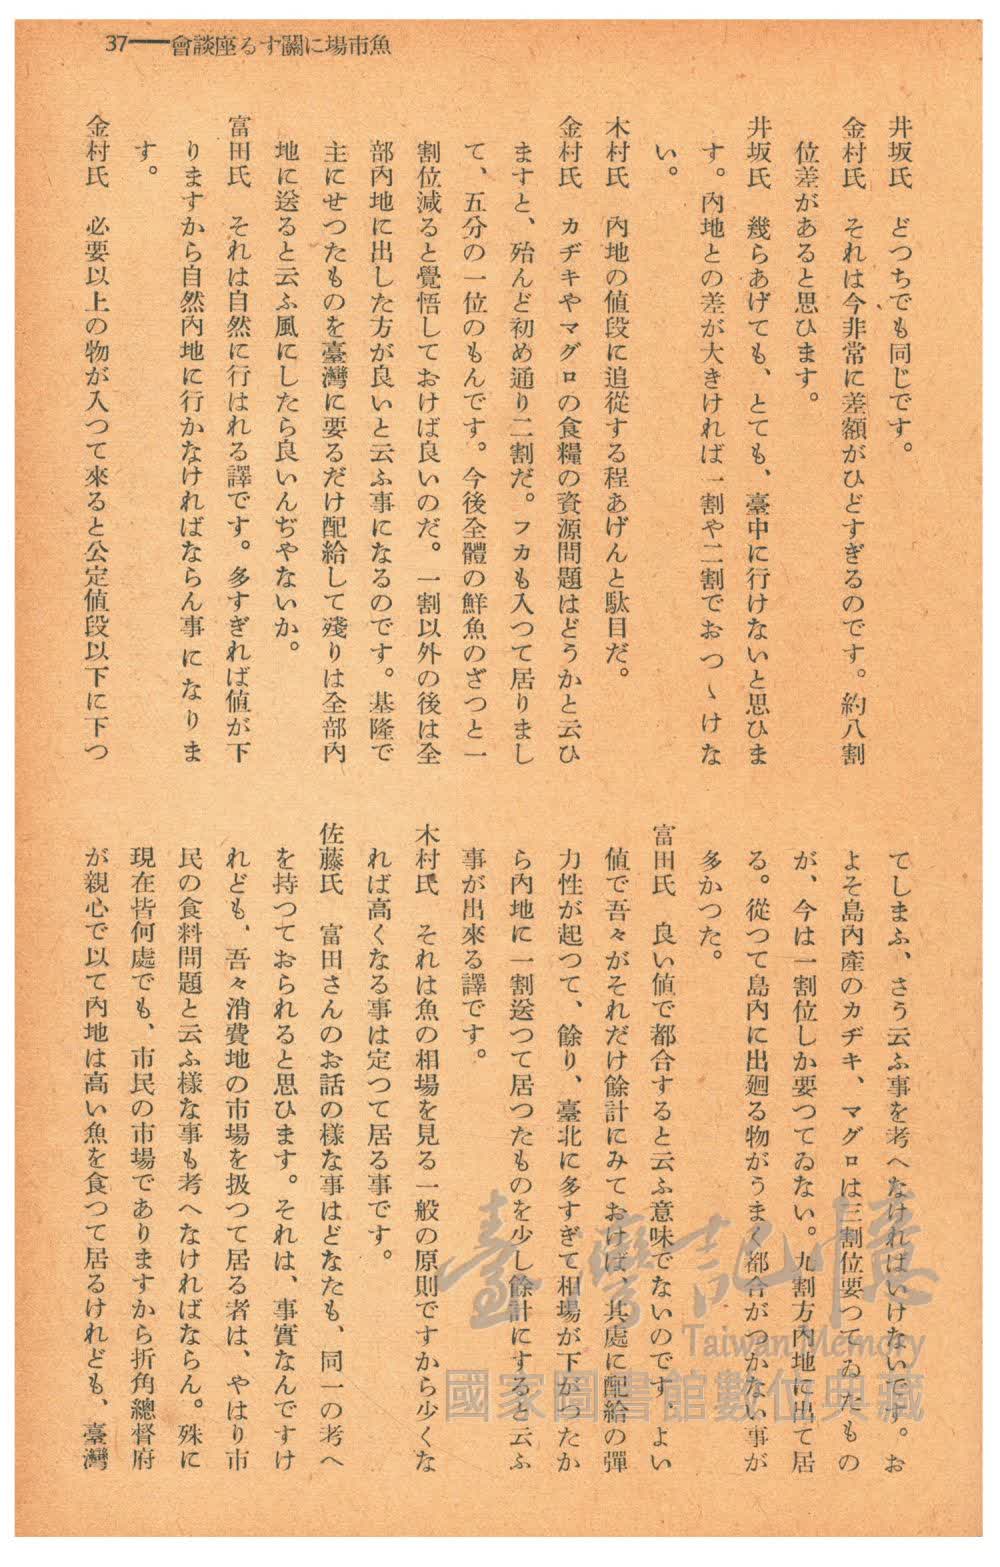 37――會談座るす關に場市魚
井坂氏　どつちでも同じです。
金村氏　それは今非常に差額がひどすぎるのです。約八割
位差があると思ひます。
井坂氏　幾らあげても、とても、臺中に行けないと思ひま
す。內地との差が大きければ一割や二割でおつゝけな
い。
木村氏　內地の値段に追從する程あげんと駄目だ。
金村氏　カヂキやマグロの食糧の資源問題はどうかと云ひ
ますと、殆んど初め通り二割だ。フカも入つて居りまし
て、五分の一位のもんです。今後全體の鮮魚のざつと一
割位減ると覺悟しておけば良いのだ。一割以外の後は全
部內地に出した方が良いと云ふ事になるのです。基隆で
主にせつたものを臺灣に要るだけ配給して殘りは全部內
地に送ると云ふ風にしたら良いんぢやないか。
富田氏　それは自然に行はれる譯です。多すぎれば値が下
りますから自然內地に行かなければならん事になりま
す。
金村氏　必要以上の物が入つて來ると公定値段以下に下つ
てしまふ、さう云ふ事を考へなければいけないです。お
よそ島內產のカヂキ、マグロは三割位要つてゐたもの
が、今は一割位しか要つてゐない。九割方內地に出て居
る。從つて島內に出廻る物がうまく都合がつかない事が
多かつた。
富田氏　良い値で都合すると云ふ意味でないのです、よい
値で吾々がそれだけ餘計にみておけば、其處に配給の彈
力性が起つて、餘り、臺北に多すぎて相場が下がつたか
ら內地に一割送つて居つたものを少し餘計にすると云ふ
事が出來る譯です。
木村氏　それは魚の相場を見る一般の原則ですから少くな
れば高くなる事は定つて居る事です。
佐藤氏　富田さんのお話の樣な事はどなたも、同一の考へ
を持つておられると思ひます。それは、事實なんですけ
れども、吾々消費地の市場を扱つて居る者は、やはり市
民の食料問題と云ふ樣な事も考へなければならん。殊に
現在皆何處でも、市民の市場でありますから折角總督府
が親心で以て內地は高い魚を食つて居るけれども、臺灣
臺灣記憶
Taiwan Memory
國家圖書館數位典藏